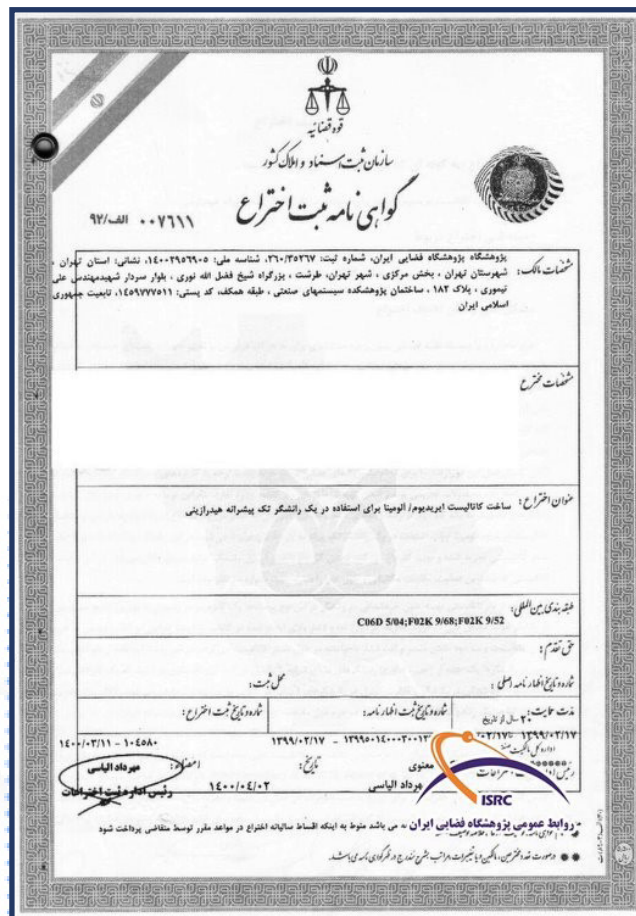 قوه قضائیه
سازمان ثبت اسناد و املاک کشور
گواهی نامه ثبت اختراع
۰۰۷۶۱۱ الف/۹۲
مشخصات مالک:
پژوهشگاه پژوهشگاه فضایی ایران، شماره ثبت: ۲۶۰/۳۵۲۶۷، شناسه ملی: ۱۴۰۰۲۹۵۶۹۰۵، نشانی: استان تهران ،
شهرستان تهران ، بخش مرکزی ، شهر تهران، طرشت ، بزرگراه شیخ فضل الله نوری ، بلوار سردار شهیدمهندس علی
تیموری ، پلاک ۱۸۲ ، ساختمان پژوهشکده سیستمهای صنعتی ، طبقه همکف، کد پستی: ۱۴۵۹۷۷۷۵۱۱، تابعیت جمهوری
اسلامی ایران
مشخصات مخترع
عنوان اختراع: ساخت کاتالیست ایریدیوم/ آلومینا برای استفاده در یک رانشگر تک پیشرانه هیدرازینی
طبقه بندی بین المللی:
C06D 5/04;F02K 9/68;F02K 9/52
حق تقدم:
شماره و تاریخ اظهارنامه اصلی: محل ثبت:
مدت حمایت: ۲۰ سال از تاریخ
شماره و تاریخ ثبت اظهارنامه:
شماره و تاریخ ثبت اختراع:
۱۳۹۹/۰۲/۱۷ تا
۱۳۹۹/۰۲/۱۷
۱۴۰۰/۰۳/۱۱ - ۱۰۴۵۸۰
اداره کل مالکیت
معنوی
مهرداد الیاسی
تاریخ:
۱۴۰۰/۰۴/۰۲
امضاء:
مهرداد الیاسی
رئیس اداره ثبت اختراعات
ISRC
روابط عمومی پژوهشگاه فضایی ایران
می باشد منوط به اینکه اقساط سالیانه اختراع در مواعد مقرر توسط متقاضی پرداخت شود
در صورت تعدد مخترعین، مالکین و یا تغییرات، مراتب بشرح مندرج در ظهر گواهی نامه می باشد.